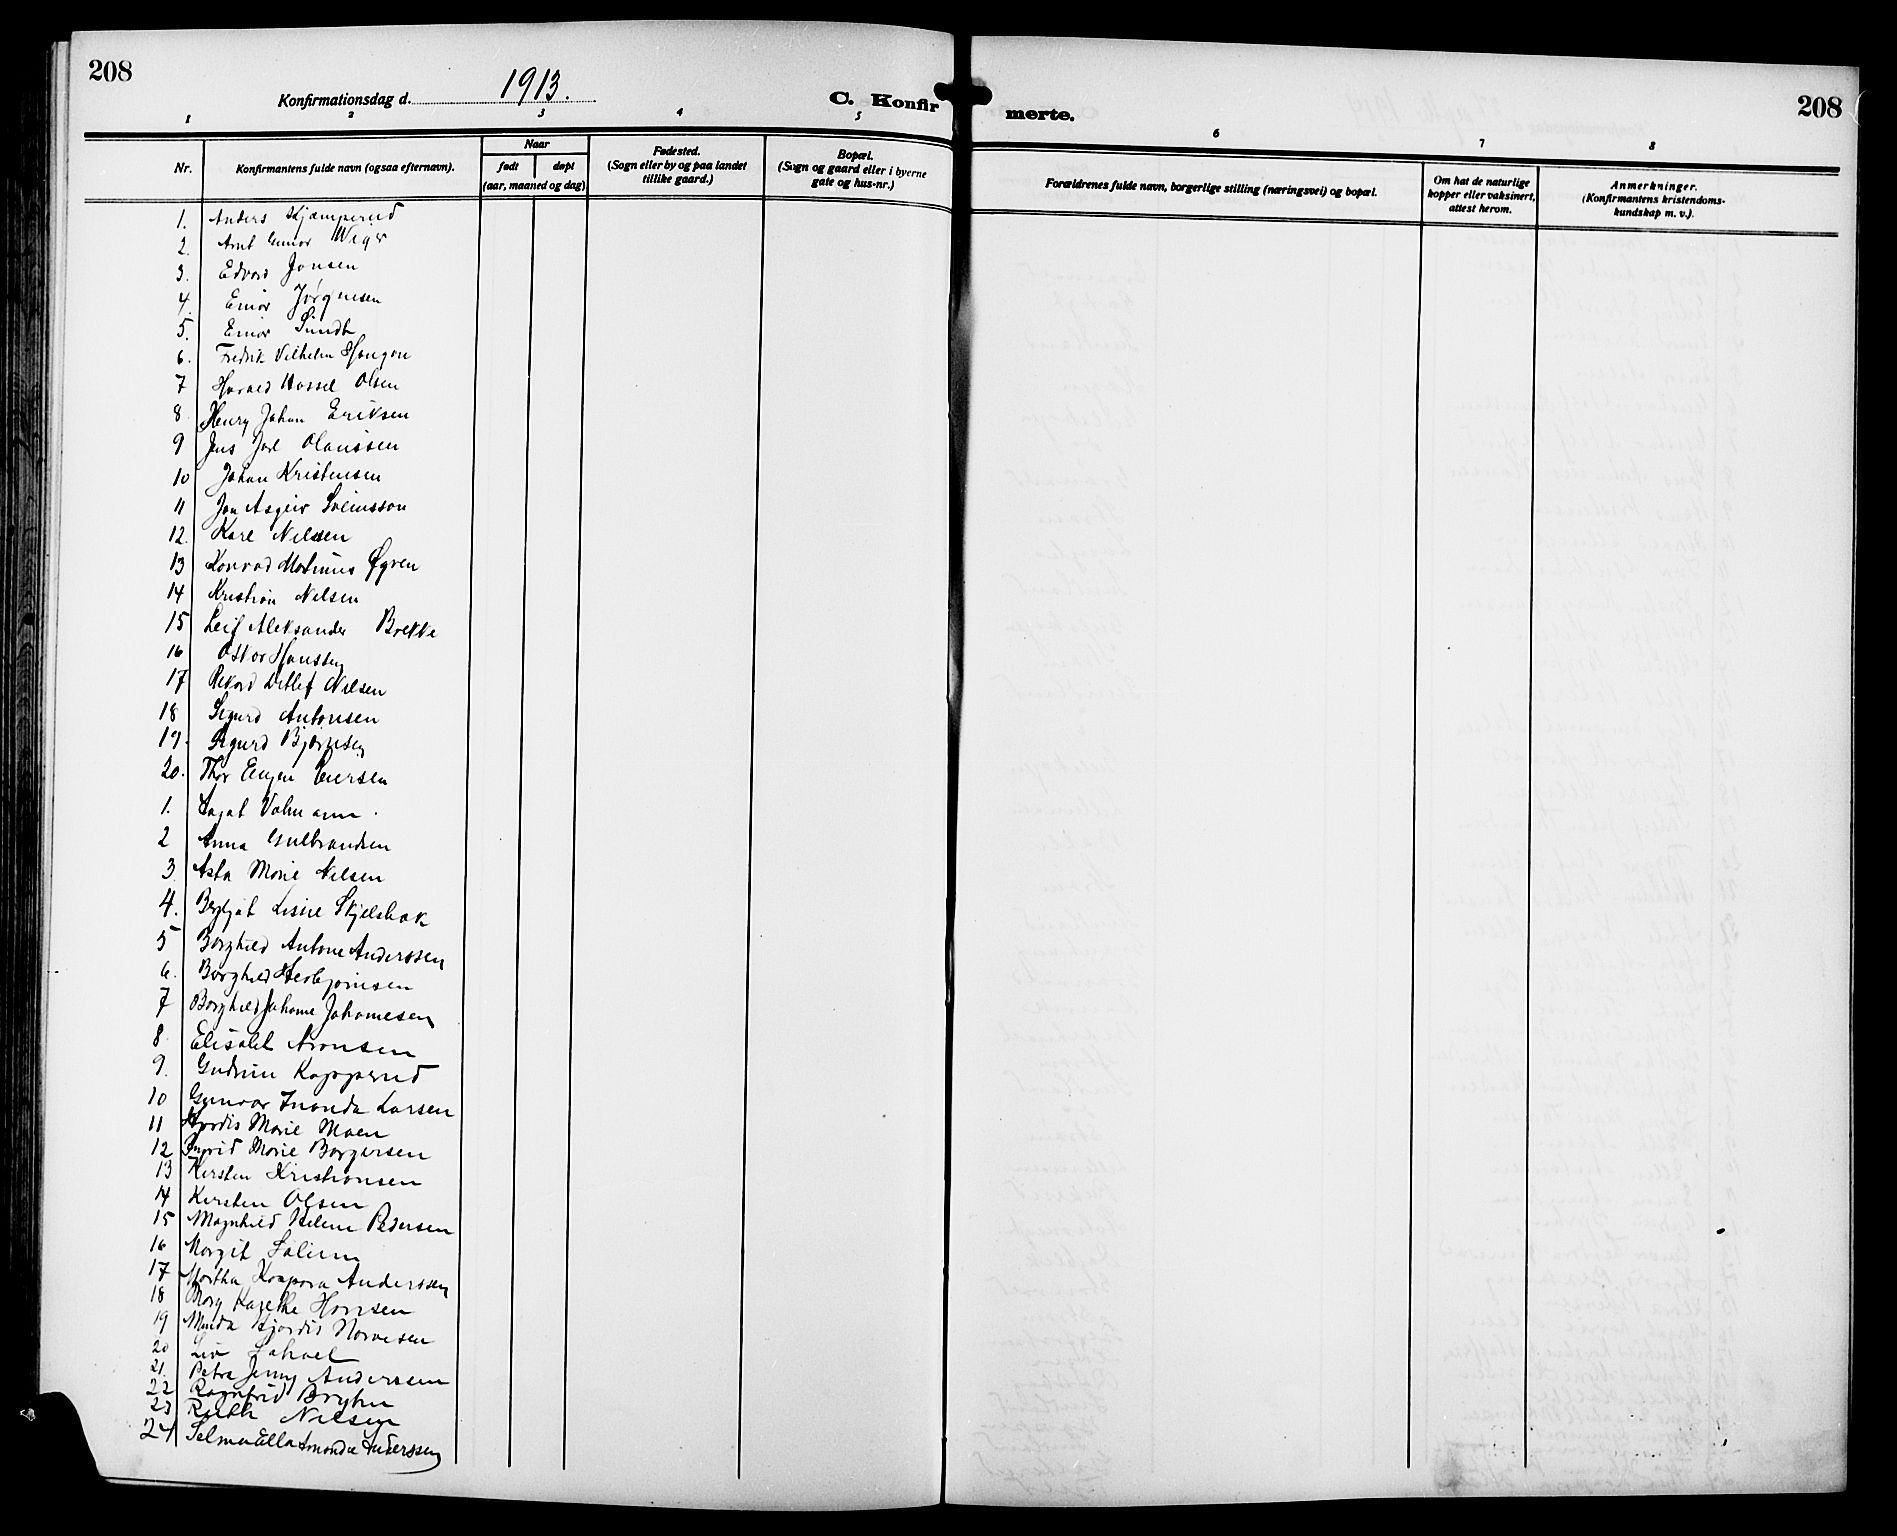 208
Konfirmationsdag d. 1913.
C. Konfir
merte.
208
1 2 3 4 5 6 7 8
Nr.
Konfirmantens fulde navn (ogsaa efternavn).
Naar
født døpt
(aar, maaned og dag)
Fødested.
(Sogn eller by og paa landet
tillike gaard.)
Bopæl.
(Sogn og gaard eller i byerne
gate og hus-nr.)
Forældrenes fulde navn, borgerlige stilling (næringsvei) og bopæl.
Om hat de naturlige
kopper eller vaksinert,
attest herom.
Anmerkninger.
(Konfirmantens kristendoms-
kundskap m. v.).
1. Anders Kjæmperud
2. Arnt Gunnar Wiger
3. Edvard Jansen
4. Einar Jørgensen
5. Einar Sundt
6. Fredrik Vilhelm Haugan
7 Harald Hassel Olsen
8 Henry Johan Eriksen
9 Jens Jarl Olaussen
10 Johan Kristensen
11 Jon Asgeir
12. Karl Nilsen
13 Konrad Øgren
14 Kristian Nilsen
15 Leif Aleksander Brekke
16 Oskar Hanssen
17 Rikard Detlef Nilsen
18 Sigurd Antonsen
19. Sigurd Bjørnsen
20. Thor Eugen Iversen
1. Valmann.
2 Anna Gulbrandsen
3 Asta Marie Nilsen
4. Bergljot Skjelsbæk
5 Borghild Antone Anderssen
6. Borghild
7 Borghild Johanne Johannesen
8 Elisabet Aronsen
9. Gudrun Kopperud
10 Gunvor Larsen
11 Hjørdis Marie Moen
12 Ingrid Marie Borgersen
13 Kirsten Kristiansen
14 Kirsten Olsen
15 Magnhild Helene Pedersen
16 Margit Solium
17 Martha Kaspara Anderssen
18 Mary Kazethe Hansen
19 Minda Hjørdis
20 Liv
21. Petra Jenny Anderssen
22 Ragnfrid Bryhn
23 Ruth Nilsen
24 Selma Ella Amanda Anderssen